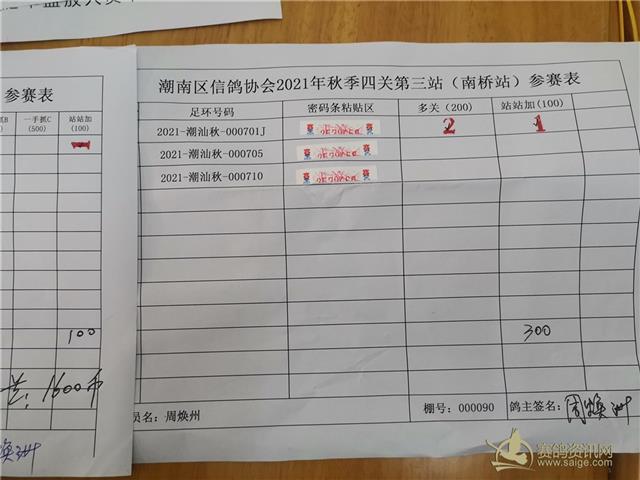 参赛表
抓B 一手抓C 站站加
(500) (100)
1
100
1600币
潮南区信鸽协会2021年秋季四关第三站（南桥站）参赛表
足环号码 密码条粘贴区 多关（200） 站站加(100)
2021-潮汕秋-000701J 2 1
2021-潮汕秋-000705
2021-潮汕秋-000710
300
员名：周焕州 棚号：000090 鸽主签名：周焕州
赛鸽资讯网
www.saige.com